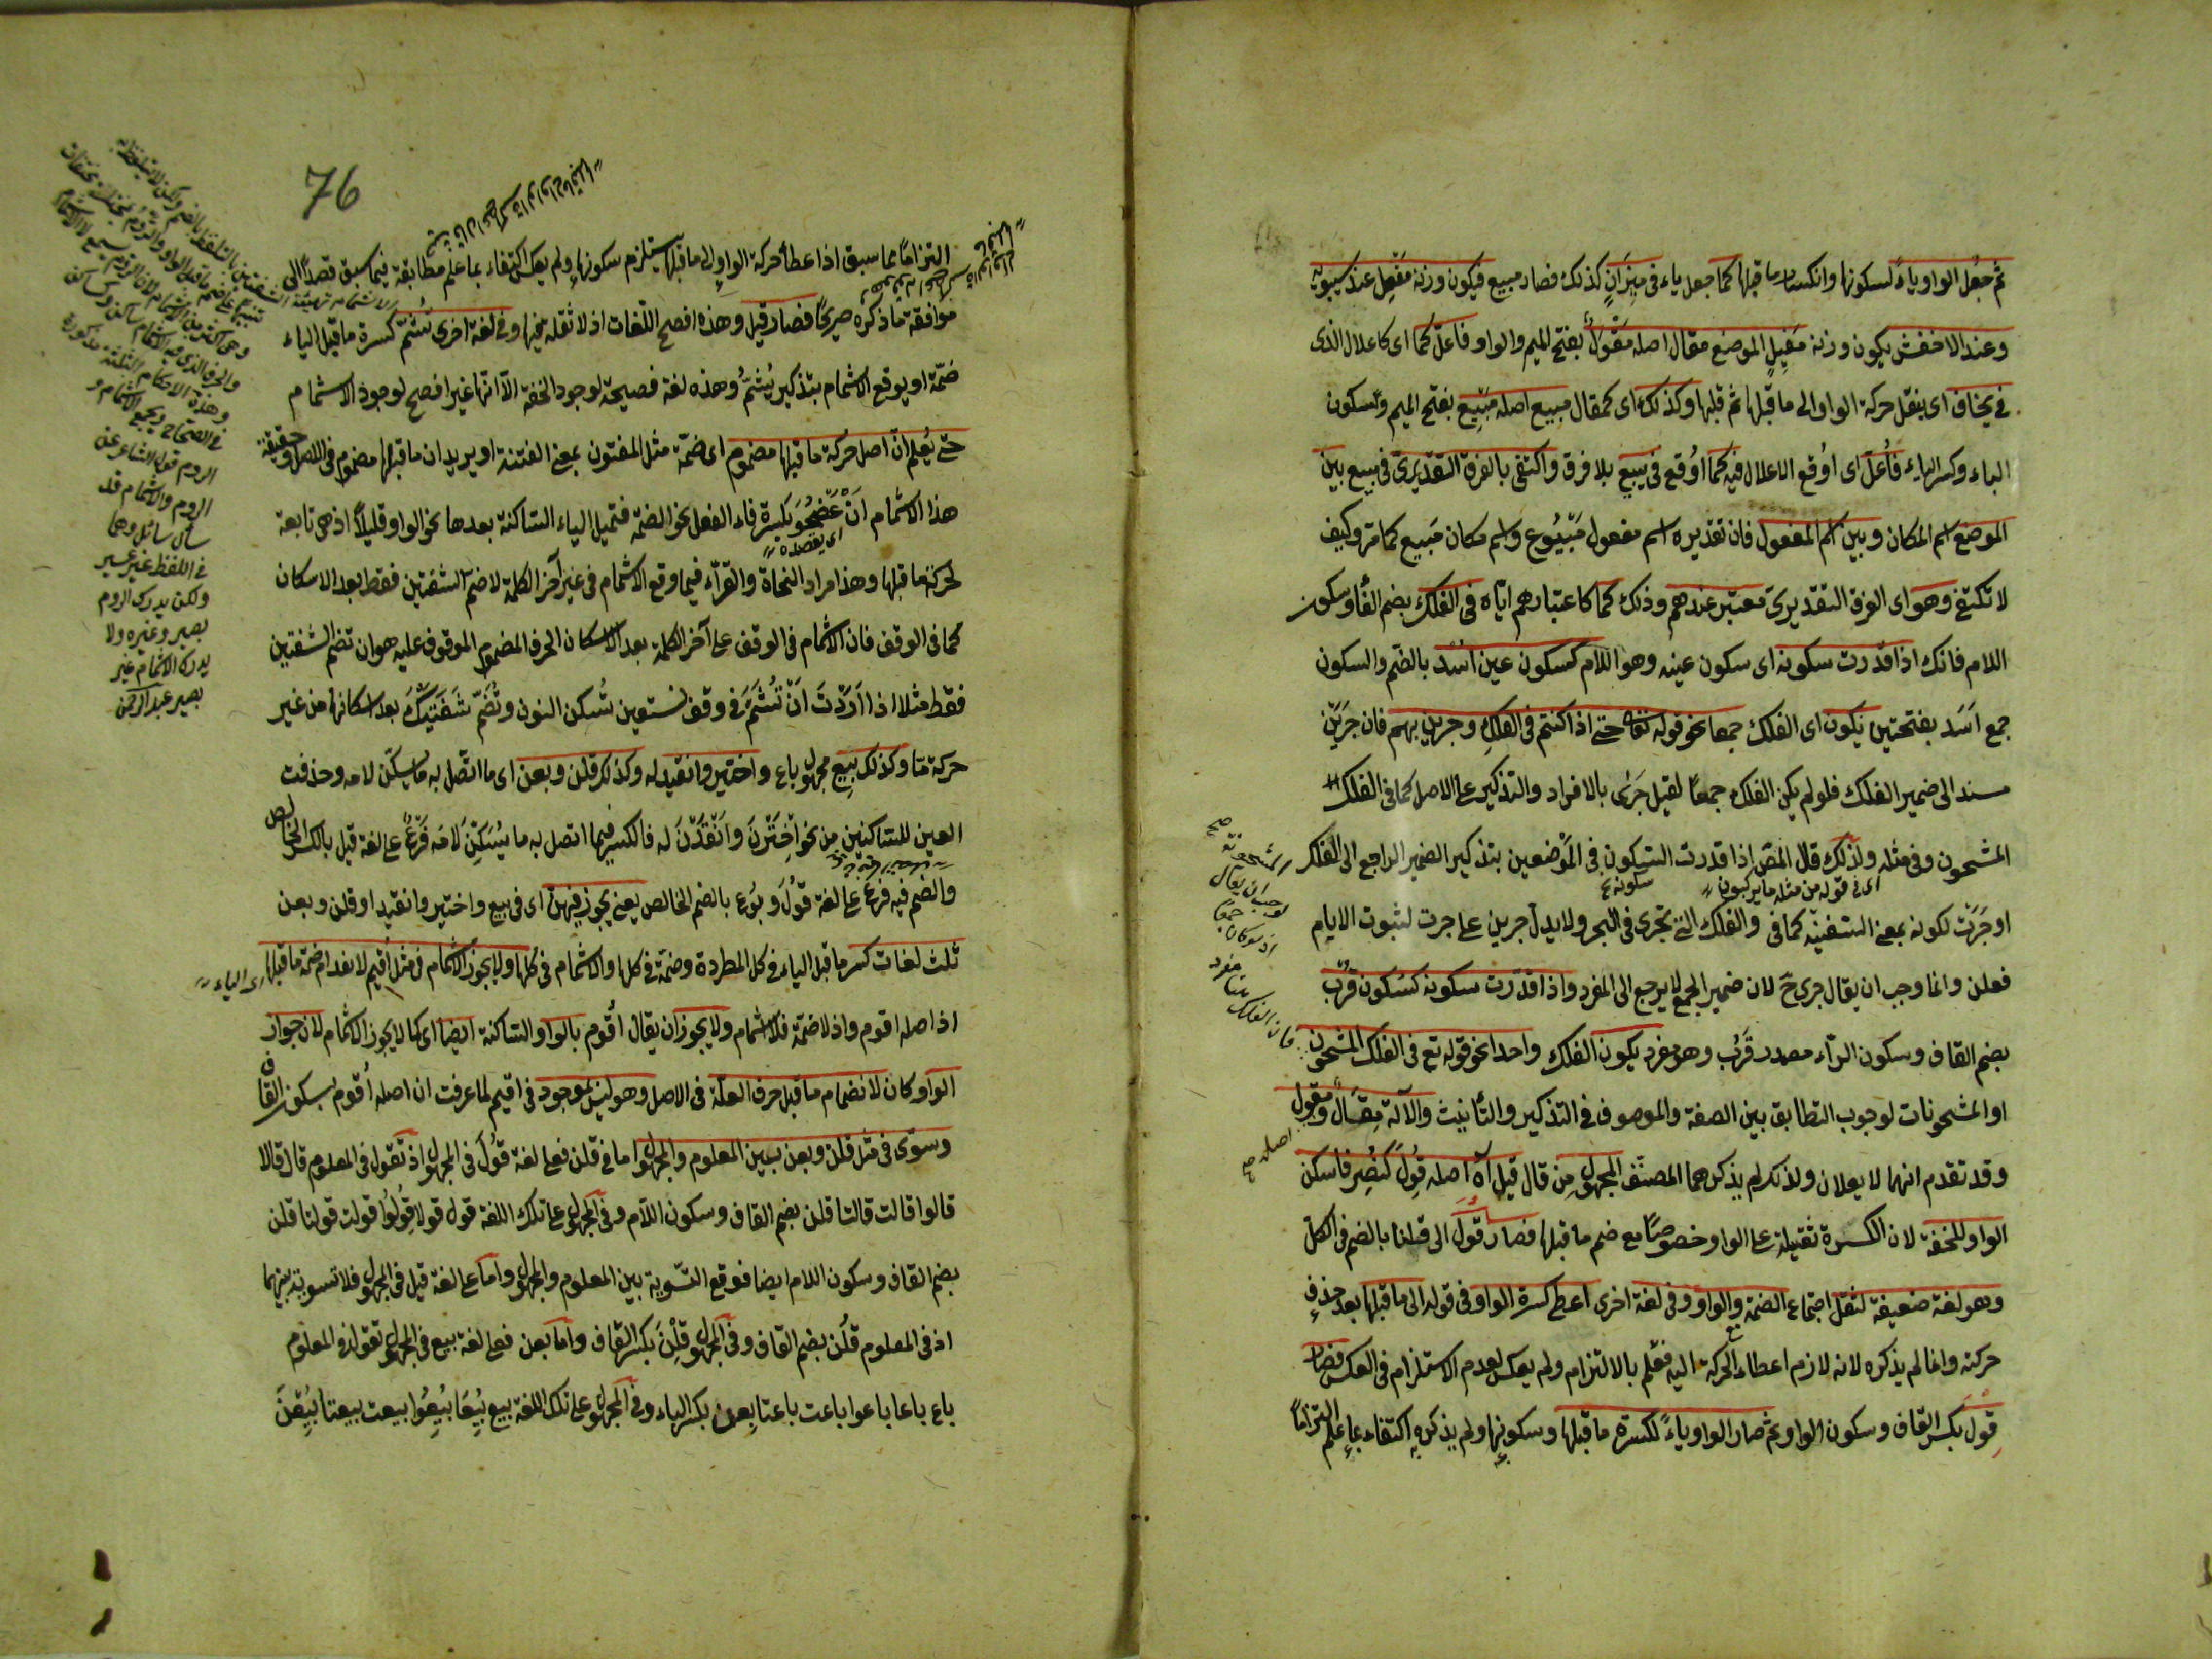 ثم جعل الواو ياءً لسكونها وانكسار ما قبلها كما جعل ياء فى ميزان كذلك فصار مبيع فيكون وزنه مفعل عند سيبويه
وعند الاخفش يكون وزنه مفيل الموضع مقال اصله مَقْوَلٌ بفتح الميم والواو فاعل كما اى كاعلال الذى
فى يخاف اى بنقل حركة الواو الى ما قبلها ثم قلبها وكذلك اى كمقال مبيع اصله مبيع بفتح الميم وسكون
الباء وكسر الياء فأعل اى اوقع الاعلال فيه كما اوقع فى يبيع بلا فرق واكتفى بالفرق التقديرى فى مبيع بين
الموضع اسم المكان وبين اسم المفعول فان تقديره اسم مفعول مَبْيُوع واسم مكان مَبيع كما مر وكيف
لا تكتفى وهو اى الفرق التقديرى معتبر عندهم وذلك كما كاعتبارهم اياه فى الفلك بضم الفاء وسكون
اللام فانك اذا قدرت سكونه اى سكون عينه وهو اللام كسكون عين اُسْد بالضم والسكون
جمع اَسَد بفتحتين يكون اى الفلك جمعا نحو قوله تعالى حتى اذا كنتم فى الفلك وجرين بهم فان جرين
مسند الى ضمير الفلك فلو لم يكن الفلك جمعًا لقيل جَرَى بالافراد والتذكير على الاصل كما فى الفلك
المشحون وفى مثله ولذلك قال المص اذا قدرت السكون فى الموضعين بتذكير الضمير الراجع الى الفلك
اى فى قوله من مثله ما يركبون
سكونه
او جَرَتْ لكونه بمعنى السفينة كما فى والفلك التى تجرى فى البحر ولا يدل جرين على جرت لثبوت الايام
فعلن وانما وجب ان يقال جرى ح لان ضمير الجمع لا يرجع الى المفرد واذا قدرت سكونه كسكون قُرْب
بضم القاف وسكون الراء مصدر قَرُب وهو مفرد يكون الفلك واحدا نحو قوله تع فى الفلك المشحون
او المشحونات لوجوب التطابق بين الصفة والموصوف فى التذكير والتأنيث والآلة مِقْيَال ومقول
وقد تقدم انهما لا يعلان ولذلك لم يذكرهما المصنف المجهول من قال قيل آه اصله قُوِلَ كنُصِر فاسكن
الواو للخفة لان الكسرة ثقيلة على الواو خصوصًا مع ضم ما قبلها فصار قُولَ الى قلنا بالضم فى الكل
وهو لغة ضعيفة لثقل اجتماع الضمة والواو وفى لغة اخرى اعطى كسرة الواو فى قوله الى ما قبلها بعد حذف
حركته وانما لم يذكره لانه لازم اعطاء الحركة اليه فعلم بالالتزام ولم يعكس لعدم الاستلزام فى العكس فصار
قِوْل بكسر القاف وسكون الواو ثم صار الواو ياءً لكسرة ما قبلها وسكونها ولم يذكره اكتفاء بما علم التزامًا
المشحونة صح
لوجب ان يقال
اذ لو كان جمعًا
فان الفلك هنا مفرد
اصله صح
76
التزامًا مما سبق اذا عطاء حركة الواو الى ما قبلها يستلزم سكونها ولم يعكس اكتفاء بما علم مطابقة فيما سبق قصدًا الى
موافقة ما ذكره صريحًا فصار قيل وهذه افصح اللغات اذ لا ثقل فيها وفى لغة اخرى تُشَمّ كسرة ما قبل الياء
ضمّة او يوقع الاشمام بتذكير يُشَمُّ وهذه لغة فصيحة لوجود الخفة الا انها غير افصح لوجود الاشمام
حتى يُعلم ان اصل حركة ما قبلها مضموم اى ضمّة مثل المفتون بمعنى الفتنة او يريد ان ما قبلها مضموم فى الاصل وحقيقة
هذا الاشمام اَنْ تَنْحُوَ بكسرة فاء الفعل نحو الضمة فتميل الياء الساكنة بعدها نحو الواو قليلًا اذ هى تابعة
اى يقصد
لحركة ما قبلها وهذا مراد النحاة والقرّاء فيما وقع الاشمام فى غير آخر الكلمة لا ضم الشفتين فقط بعد الاسكان
كما فى الوقف فان الاشمام فى الوقف على آخر الكلمة بعد الاسكان الحرف المضموم الموقوف عليه هو ان تضم الشفتين
فقط مثلا اذا اَرَدْتَ اَنْ تُشِمَّ فى وقف نستعين تُسكن النون وتَضُمّ شَفَتَيْكَ بعد اسكانها من غير
حركة ما وكذلك بِيع مجهول باع واختير وانقيد له وكذلك قلن وبعن اى ما اتصل به ما يسكن لامه وحذفت
العين للساكنين من نحو اُخْتِرْنَ واُنْقِدْنَ له فالكسر فيما اتصل به ما يُسَكّن لامه فرع على لغة قيل بالكسر الخالص
والضم فيه فرع على لغة قُولَ وبُوع بالضم الخالص يعنى يجوز فيهن اى فى بيع واختير وانقيد او قلن وبعن
ثلث لغات كسر ما قبل الياء فى كل المطردة وضمه فى كلها والاشمام فى كلها ولا يجوز الاشمام فى مثل اقيم لانعدام ضمة ما قبلها اى الياء
اذ اصله اقوم واذ لا ضمة فلا اشمام ولا يجوز ان يقال اُقُوم بالواو الساكنة ايضا اى كما لا يجوز الاشمام لان جواز
الواو كان لانضمام ما قبل حرف العلة فى الاصل وهو ليس بموجود فى اقيم لما عرفت ان اصله اُقوم بسكون القاف
وسوى فى مثل قلن وبعن بين المعلوم والمجهول اما فى قلن فعلى لغة قُولَ فى المجهول اذ تقول فى المعلوم قال قالا
قالوا قالت قالتا قلن بضم القاف وسكون اللام وفى المجهول على تلك اللغة قول قولا قولوا قولت قولتا قلن
بضم القاف وسكون اللام ايضا فوقع التسوية بين المعلوم والمجهول واما على لغة قيل فى المجهول فلا تسوية بينهما
اذ فى المعلوم قُلن بضم القاف وفى المجهول قِلْنَ بكسر القاف واما بعن فعلى لغة بيع فى المجهول تقول فى المعلوم
باع باعا باعوا باعت باعتا بعن بكسر الباء وفى المجهول على تلك اللغة بيع بِيعَا بِيعُوا بيعت بيعتا بِعْنَ
فى الصحاح
الروم قول الشاعر عن
الروم والاشمام قد
سأل سائل وهما
فى اللفظ غير عسير
ولكن يدرك الروم
بصير وغيره ولا
يدرك الاشمام غير
بصير عبد الرحمن